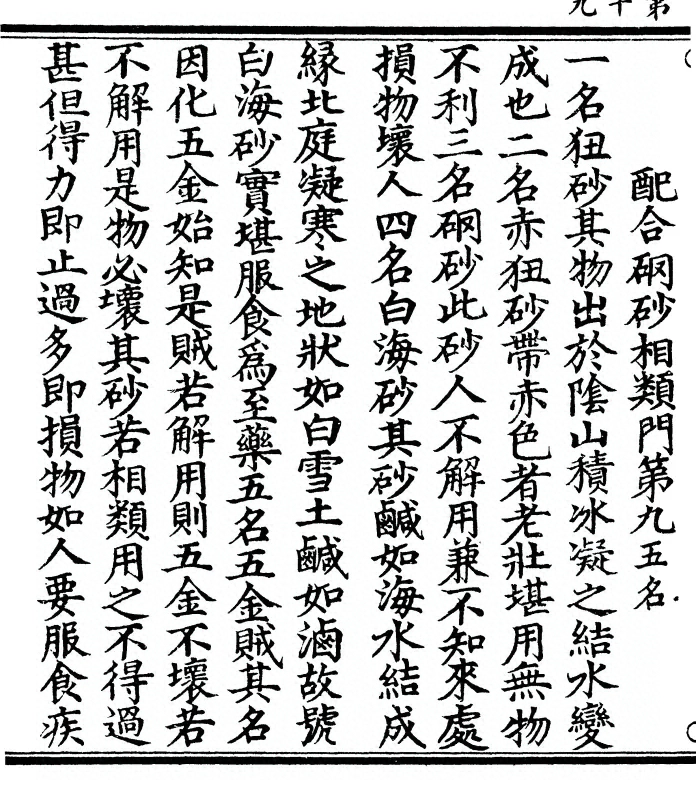 第十九
配合硇砂相類門第九五名
一名狃砂其物出於陰山積冰凝之結水變
成也二名赤狃砂帶赤色者老壯堪用無物
不利三名硇砂此砂人不解用兼不知來處
損物壞人四名白海砂其砂鹹如海水結成
緣北庭凝寒之地狀如白雪土鹹如滷故號
白海砂實堪服食爲至藥五名五金賊其名
因化五金始知是賊若解用則五金不壞若
不解用是物必壞其砂若相類用之不得過
甚但得力即止過多即損物如人要服食疾